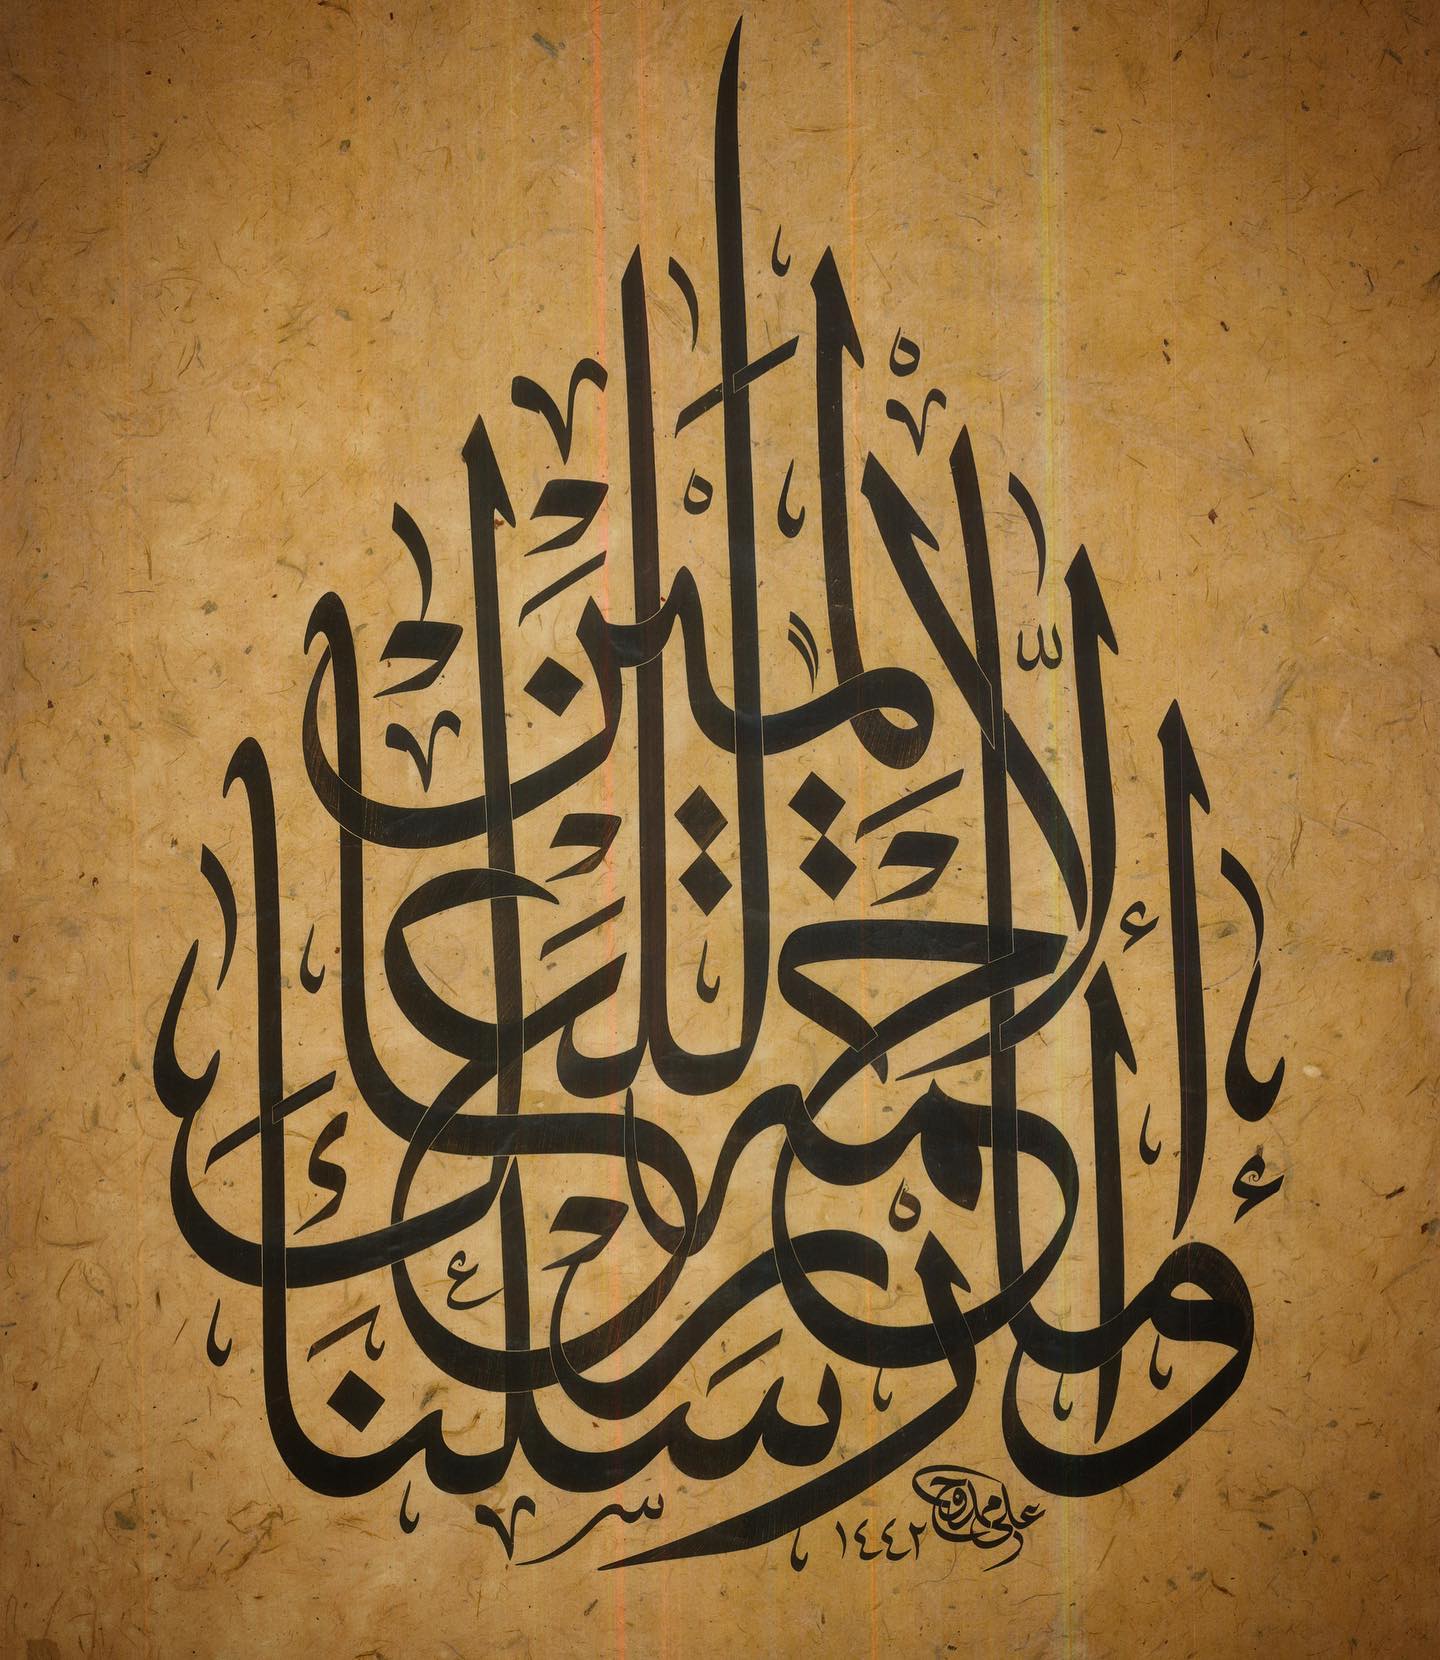 وما أرسلناك إلا رحمة للعالمين
علي ممدوح
١٤٤٢